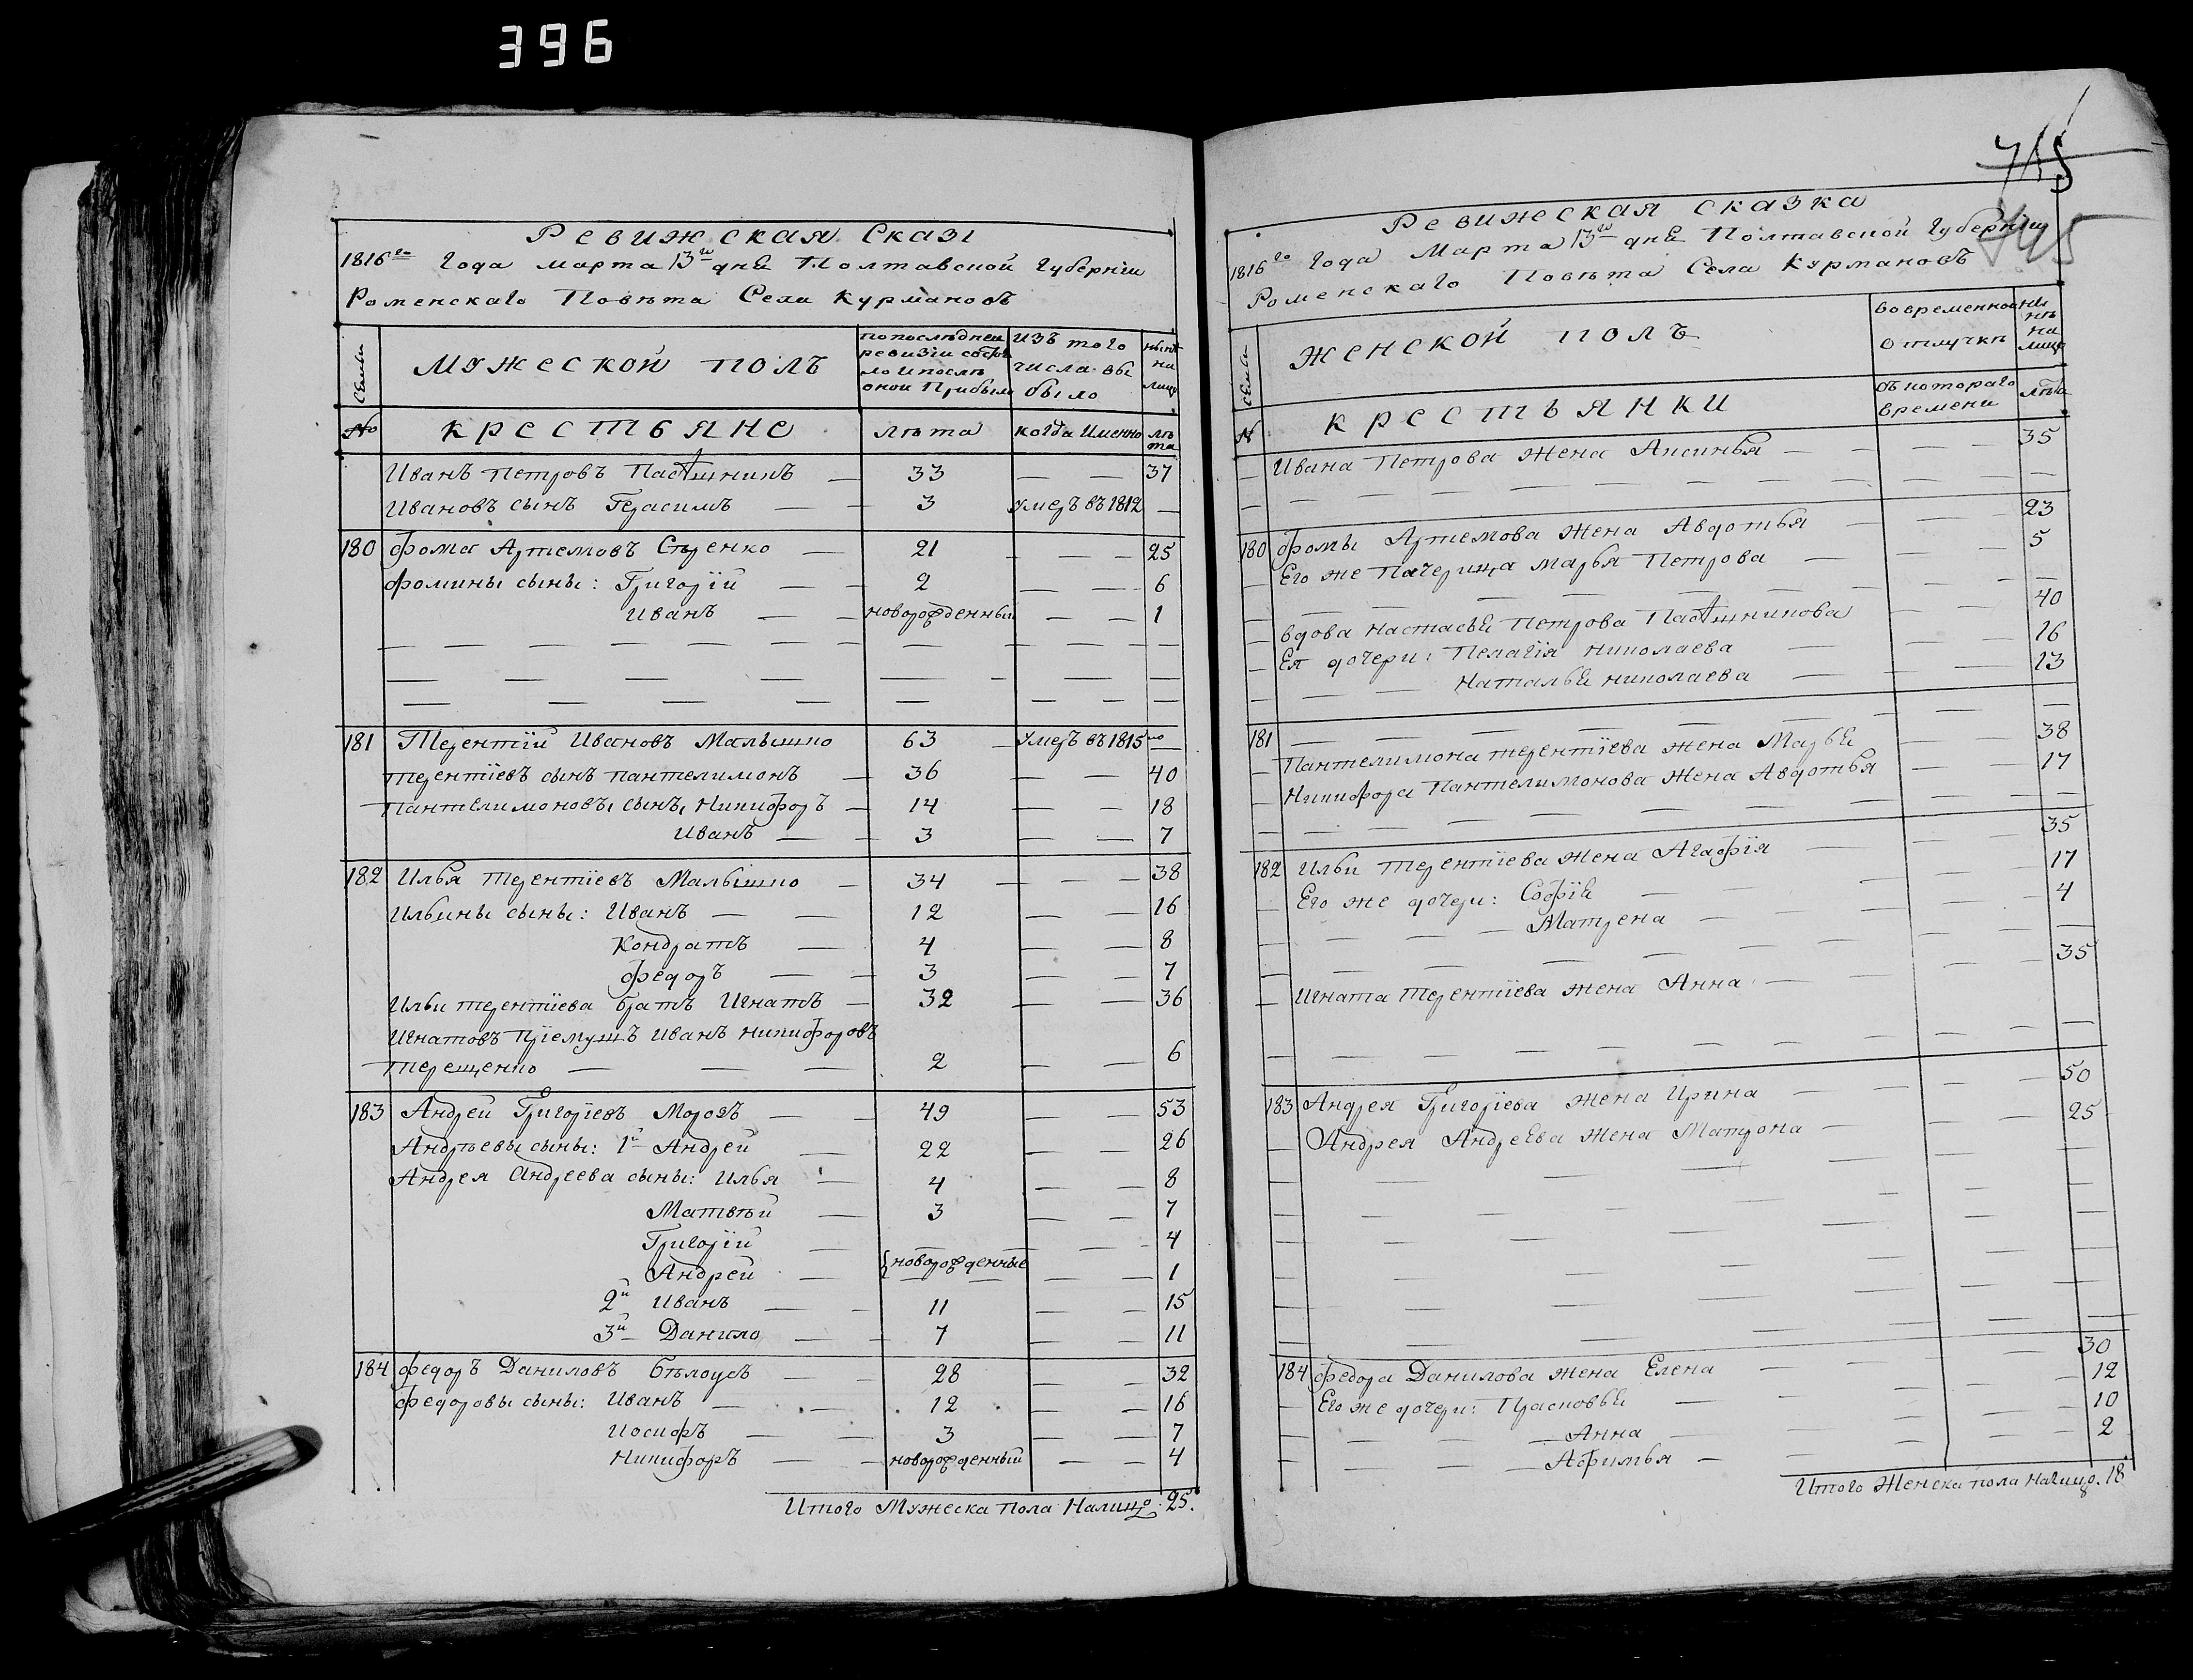 396
Ревижская Сказ
1816го Года марта 13го дня Полтавской Губернiи
Роменскаго Повѣта Села Курмановъ
Семьи
Мужеской полъ
попослѣдней ревизiи состояло и послѣ оной Прибыло
изъ того числа выбыло
нынѣ на лицо
№ Крестьяне Лѣта когда Именно лѣта
Иванъ Петровъ 33 — — 37
Ивановъ сынъ Герасимъ — — 3 Умеръ въ 1812 —
180 Фома Артемовъ — 21 — — — 25
Фомины сыны: Григорiй — — 2 — — 6
Иванъ — — новорожденный — — 1
181 Терентiй Ивановъ Малышко 63 — Умеръ въ 1815мъ —
Терентiевъ сынъ Пантелимонъ — 36 — — 40
Пантелимоновы сыны, Никифоръ — 14 — — 18
Иванъ — — 3 — — 7
182 Илья Терентiевъ Малышко — 34 — — — 38
Ильины сыны: Иванъ — — 12 — — 16
Кондратъ — 4 — — 8
Федоръ — — 3 — — 7
Ильи Терентiева братъ Игнатъ — 32 — — 36
Игнатовъ Прiемушъ Иванъ Никифоровъ
Терещенко — — — 2 — — 6
183 Андрей Григорiевъ Морозъ — — 49 — — 53
Андрѣевы сыны: 1й Андрей — 22 — — 26
Андрея Андреева сыны: Илья — 4 — — 8
Матвѣй — 3 — — 7
Григорiй — — — — 4
{новорожденные
Андрей — — — — 1
2й Иванъ — — 11 — — 15
3й Данило — — 7 — — 11
184 Федоръ Даниловъ Бѣлоусъ — — 28 — — 32
Федоровы сыны: Иванъ — — 12 — — 16
Иосифъ — — 3 — — 7
Никифоръ — — новорожденный — — 4
Итого Мужеска пола Налицо 25.
745
Ревижская сказка
1816го Года Марта 13го дня Полтавской Губернiи
Роменскаго Повѣта Села Курмановъ
Семьи
Женской полъ
Во временной отлучкѣ
нынѣ на лицо
№ Крестьянки
Съ котораго времени
лѣта
Ивана Петрова Жена Аксинья — — — — 35
180 Фомы Артемова Жена Авдотья — — — 23
Его же Пачерица Марья Петрова — — — 5
Вдова Настасья Петрова — — 40
Ея дочери: Пелагiя Николаева — — — 16
Наталья Николаева — — — 13
181 — — — — — — — —
Пантелимона Терентiева жена Марья — — 38
Никифора Пантелимонова Жена Авдотья — — 17
182 Ильи Терентiева Жена Агафiя — — — 35
Его же дочери: Софiя — — — — 17
— — — Матрена — — — — 4
Игната Терентiева жена Анна — — — 35
183 Андрея Григорiева жена Ирина — — — — 50
Андрея Андреева Жена Матрона — — — 25
184 Федора Данилова жена Елена — — — 30
Его же дочери: Прасковья — — — — 12
— — — Анна — — — — 10
— — — Афимья — — — — 2
Итого Женска пола Налицо. 18